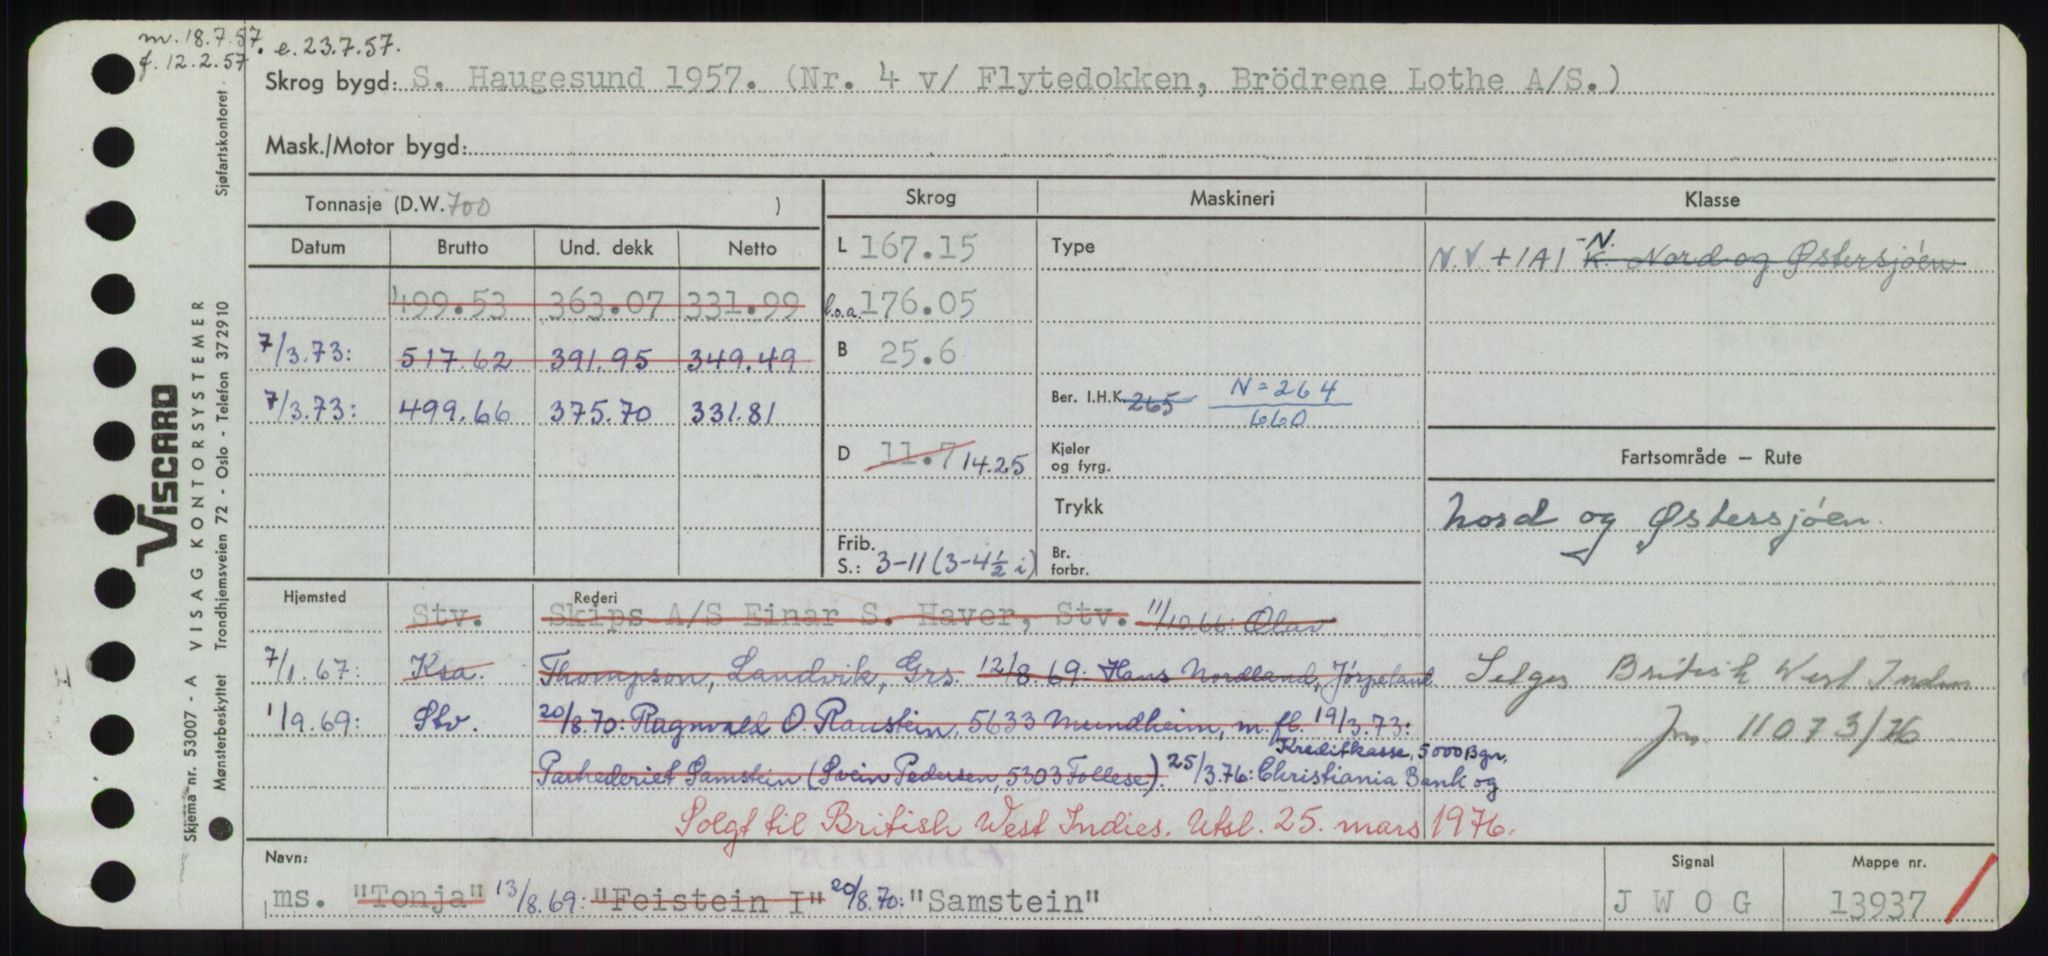 m. 18.7.57. e. 23.7.57.
f. 12.2.57
Skrog bygd: S. Haugesund 1957. (Nr. 4 v/ Flytedokken, Brödrene Lothe A/S.)
Mask./Motor bygd:
Tonnasje (D.W. 700 )
Skrog
Maskineri
Klasse
Datum Brutto Und. dekk Netto
499.53 363.07 331.99
7/3.73: 517.62 391.95 349.49
7/3.73: 499.66 375.70 331.81
L 167.15
l.o.a. 176.05
B 25.6
D 11.7 14.25
Frib.
S.: 3-11 (3-4½ i)
Type
Ber. I.H.K. 265 N = 264
660
Kjeler
og fyrg.
Trykk
Br.
forbr.
N.V. + 1A1 -N.
K. Nord og Østersjøen
Fartsområde — Rute
Nord og Østersjøen
Selges British West Indies
Jnr. 11073/76
Hjemsted
Rederi
Stv. Skips A/S Einar S. Haver, Stv. 11/10.66: Olav
7/1.67: Ksa. Thompson, Landvik, Grs. 12/8 69: Hans Nordland, Jørpeland
1/9.69: Stv. 20/8.70: Ragnvald O. Raustein, 5633 Mundheim, m.fl. 19/3.73:
Kreditkasse, 5000 Bgn.
Partrederiet Samstein (Svein Pedersen, 5303 Follese). 25/3.76: Christiania Bank og
Solgt til British West Indies. Utsl. 25. mars 1976.
Navn:
ms. "Tonja" 13/8.69: "Feistein I" 20/8.70: "Samstein"
Signal
J W O G
Mappe nr.
13937
VISCARD
VISAG KONTORSYSTEMER
Skjema nr. 53007 - A
Mønsterbeskyttet Trondhjemsveien 72 - Oslo - Telefon 372910 Sjøfartskontoret